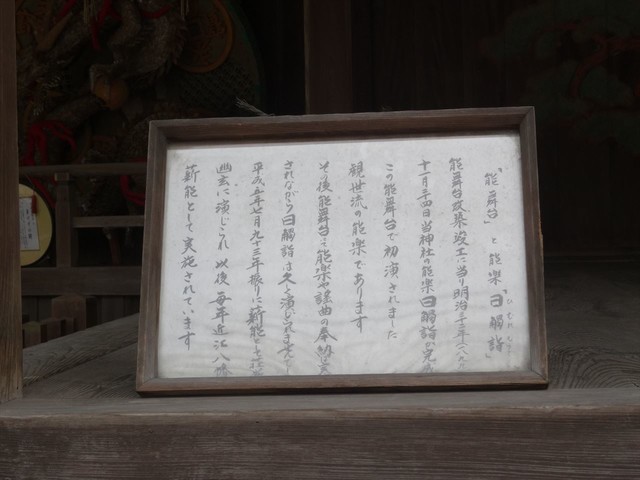 「能舞台」と能楽「日觸詣」
能舞台改築竣工に当り明治三十二年
十一月三四日当神社の能楽日觸詣が完成
この能舞台で初演されました
観世流の能楽であります
その後能舞台で能楽や謡曲の奉納
されながら日觸詣は久しく演じられません
平成五年七月九十三年振りに薪能として
幽玄に演じられ以後毎年近江八幡
薪能として実施されています